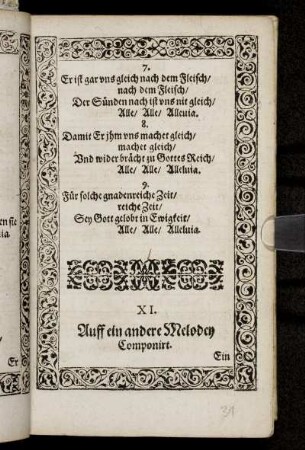 7.
Er ist gar vns gleich nach dem Fleisch/
nach dem Fleisch/
Der Sünden nach ist vns nit gleich/
Alle/ Alle/ Alleuia.
8.
Damit Er jhm vns machet gleich/
machet gleich/
Vnd wider brächt zu Gottes Reich/
Alle/ Alle/ Alleluia.
9.
Für solche gnadenreiche Zeit/
reiche Zeit/
Sey Gott gelobt in Ewigkeit/
Alle/ Alle/ Alleluia.
XI.
Auff ein andere Melodey
Componirt.
Ein
31